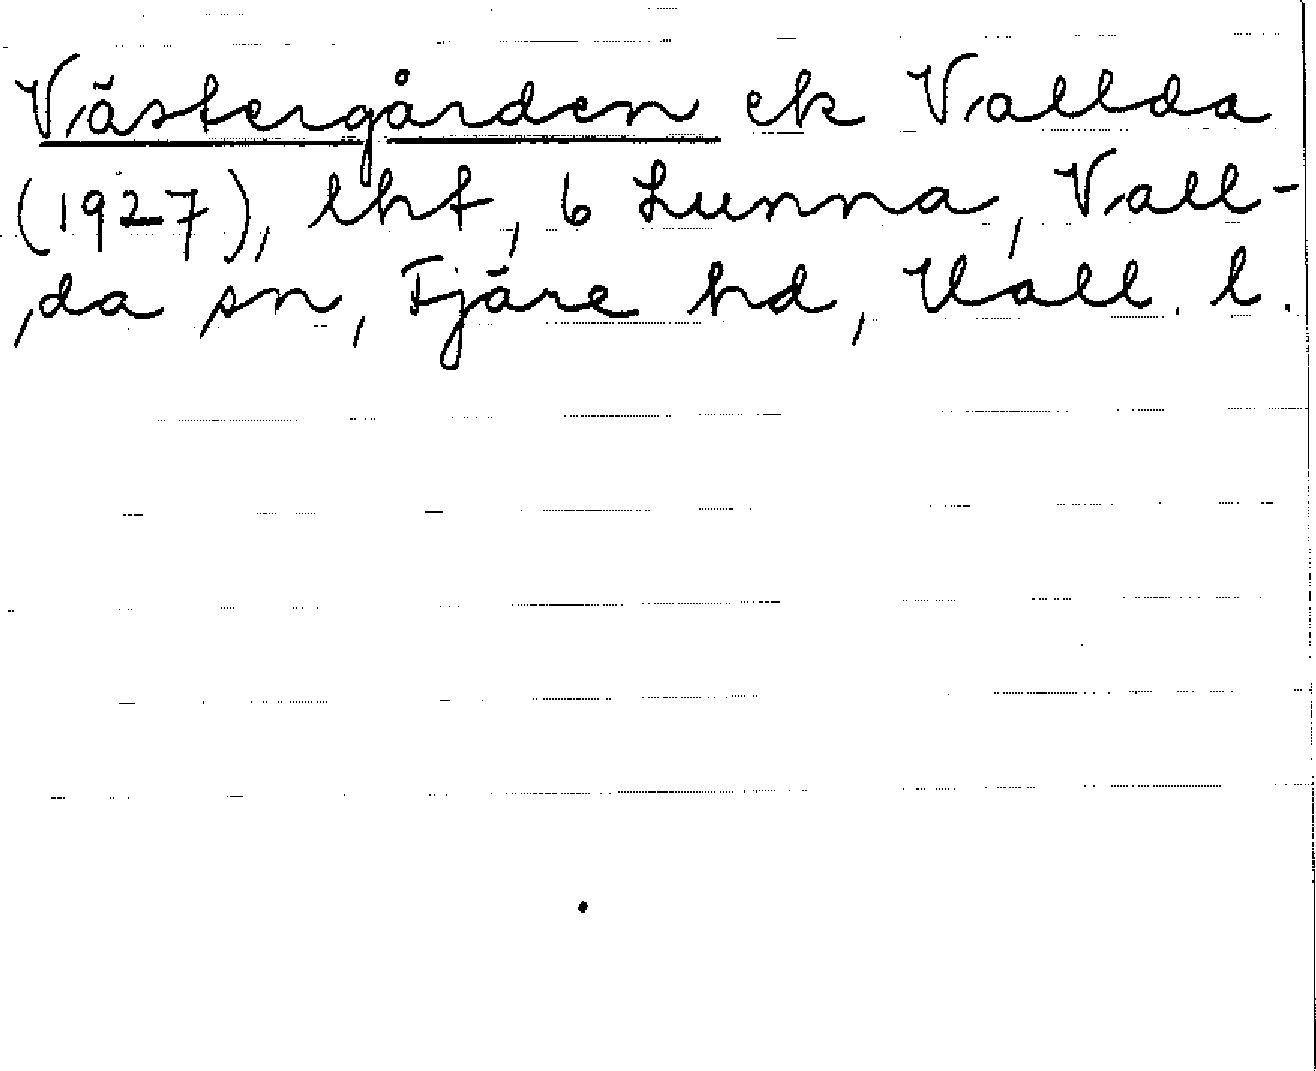 Västergården ek Vallda
(1927), lht, 6 Lunna, Vall-
da sn, Fjäre hd, Hall. l.